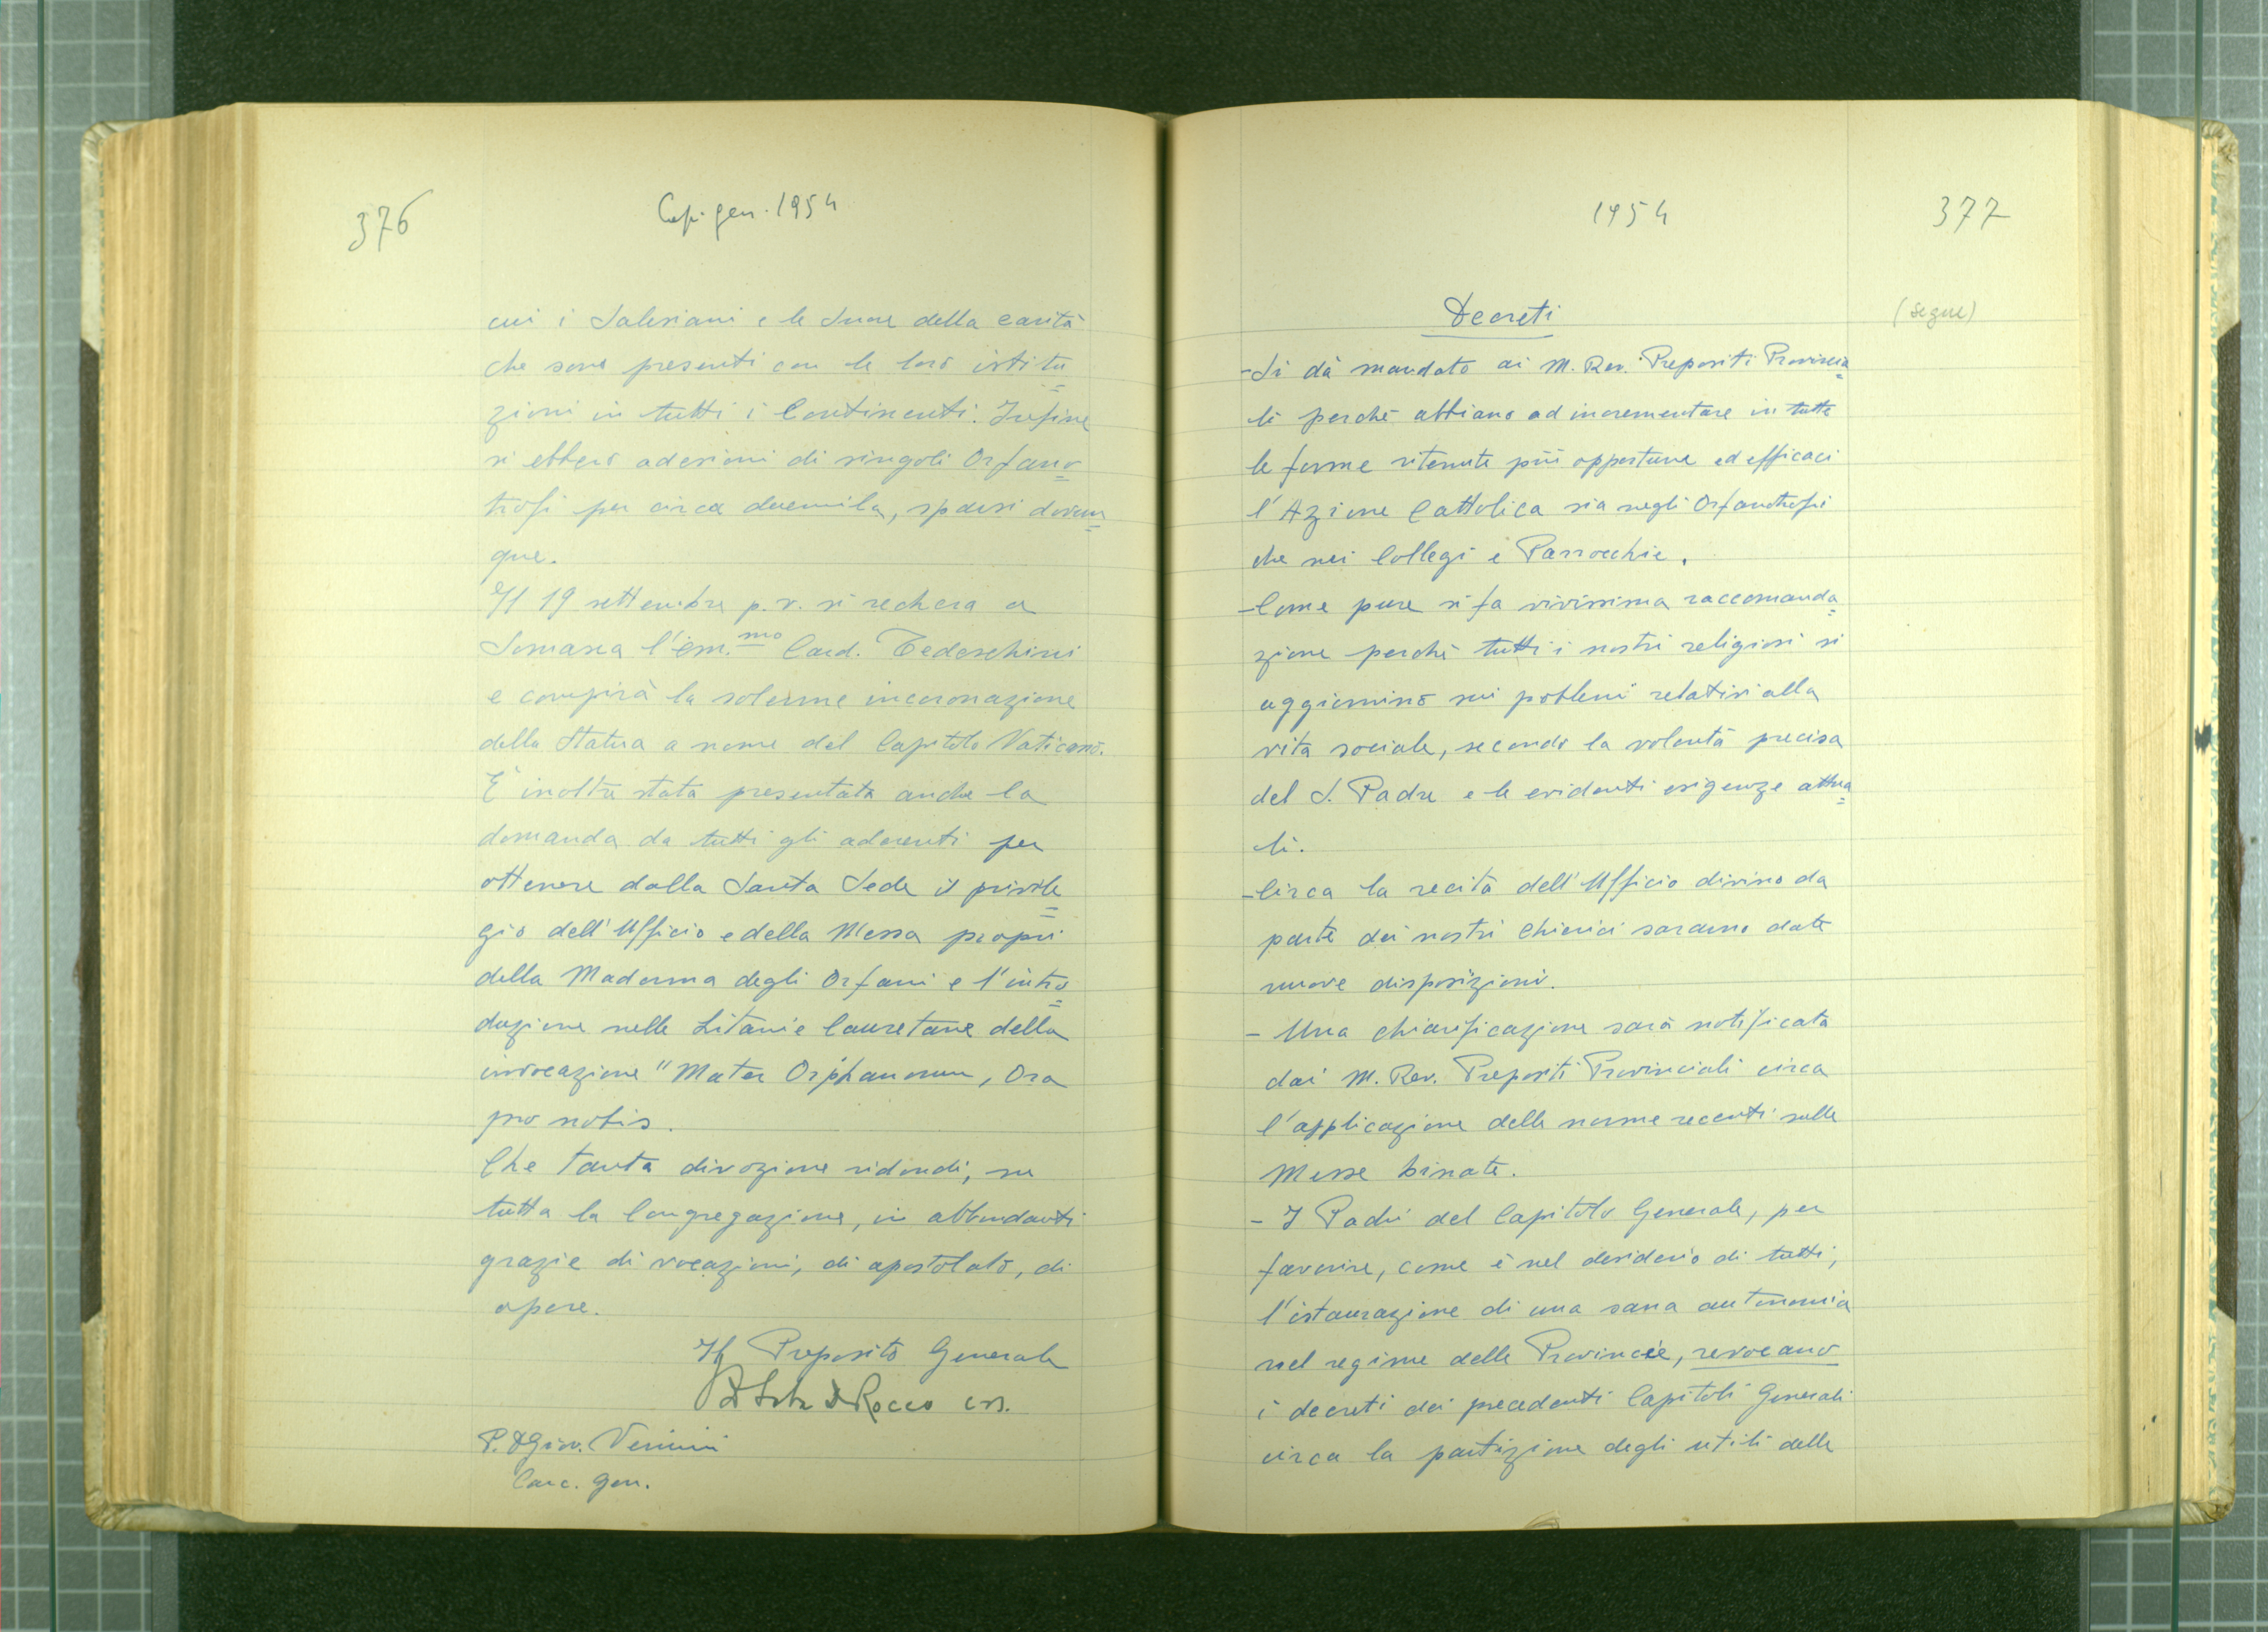 376
Cap. gen. 1954
cui i Salesiani e le Suore della carità
che sono presenti con le loro istitu=
zioni in tutti i Continenti. Infine
si ebbero adesioni di singoli Orfano=
trofi per circa duemila, sparsi dovun=
que.
Il 19 settembre p.v. si recherà a
Somasca l'em.mo Card. Tedeschini
e compirà la solenne incoronazione
della Statua a nome del Capitolo Vaticano.
E' inoltre stata presentata anche la
domanda da tutti gli aderenti per
ottenere dalla Santa Sede il privile=
gio dell'Ufficio e della Messa propri
della Madonna degli Orfani e l'intro=
duzione nelle Litanie lauretane della
invocazione "Mater Orphanorum, Ora
pro nobis.
Che tanta divozione ridondi, su
tutta la Congregazione, in abbondanti
grazie di vocazioni, di apostolato, di
opere.
Il Preposito Generale
Rocco crs.
P. D Giov. Venini
Canc. gen.
1954
377
Decreti
(segue)
-Si dà mandato ai M. Rev. Prepositi Provincia=
li perchè abbiano ad incrementare in tutte
le forme ritenute più opportune ed efficaci
l'Azione Cattolica sia negli Orfanotrofi
che nei Collegi e Parrocchie.
-Come pure si fa vivissima raccomanda=
zione perchè tutti i nostri religiosi si
aggiornino sui problemi relativi alla
vita sociale, secondo la volontà precisa
del S. Padre e le evidenti esigenze attua=
li.
-Circa la recita dell'Ufficio divino da
parte dei nostri Chierici saranno date
nuove disposizioni.
- Una chiarificazione sarà notificata
dai M. Rev. Prepositi Provinciali circa
l'applicazione delle norme recenti sulle
Messe binate.
- I Padri del Capitolo Generale, per
favorire, come è nel desiderio di tutti,
l'istaurazione di una sana autonomia
nel regime delle Provincie, revocano
i decreti dei precedenti Capitoli Generali
circa la partizione degli utili delle